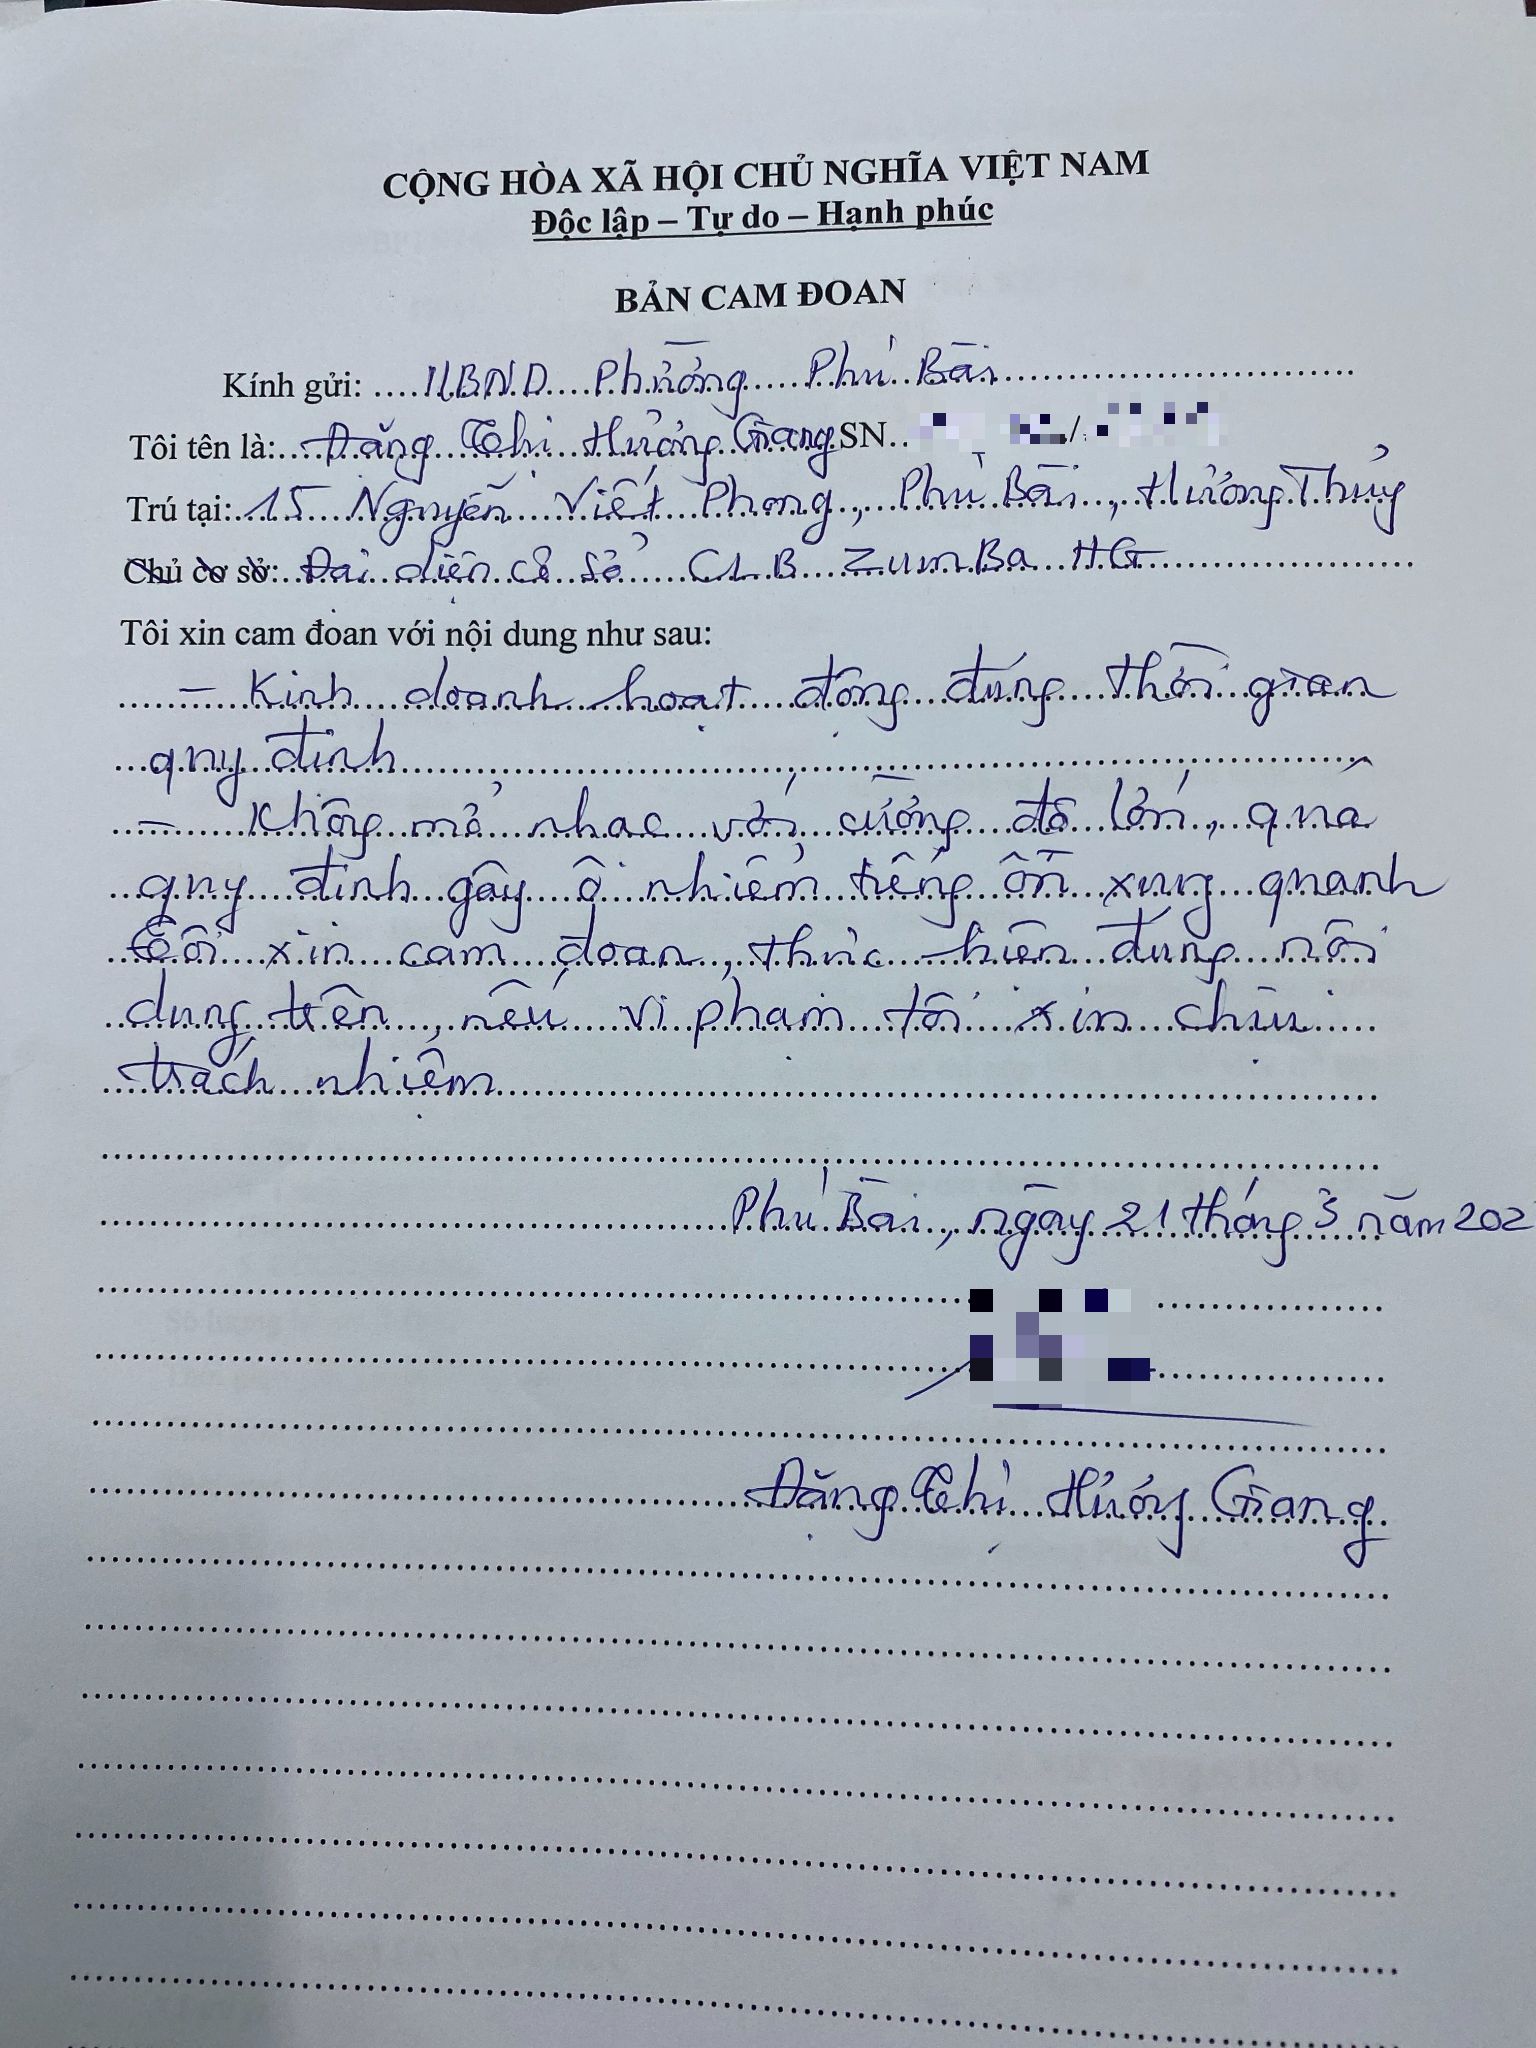 CỘNG HÒA XÃ HỘI CHỦ NGHĨA VIỆT NAM
Độc lập – Tự do – Hạnh phúc
BẢN CAM ĐOAN
Kính gửi: UBND Phường Phú Bài
Tôi tên là: Đặng Thị Hương Giang SN /
Trú tại: 15 Nguyễn Viết Phong, Phú Bài, Hương Thủy
Chủ cơ sở: Đại diện cơ sở CLB ZumBa HG
Tôi xin cam đoan với nội dung như sau:
– Kinh doanh hoạt động đúng thời gian
quy định
– Không mở nhạc với cường độ lớn, quá
quy định gây ô nhiễm tiếng ồn xung quanh
Tôi xin cam đoan, thực hiện đúng nội
dung trên, nếu vi phạm tôi xin chịu
trách nhiệm
Phú Bài, ngày 21 tháng 3 năm 202
Đặng Thị Hương Giang